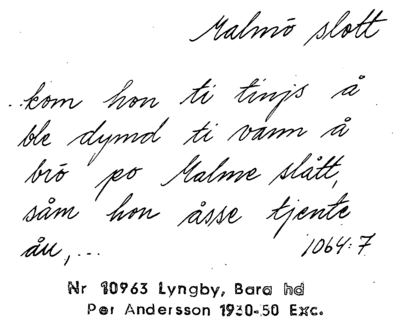 Malmö slott
..kom hon ti tings å
ble dymd ti vann å
brö po Malme slått,
såm hon åsse tjente
åu,...
1064:7
Nr 10963 Lyngby, Bara hd
Per Andersson 1930-50 Exc.